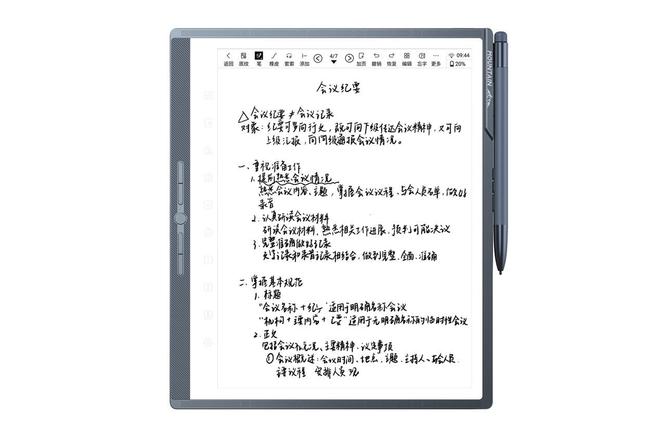 返回 底纹 笔 橡皮 套索 添加 4/7 加页 撤销 恢复 编辑 忘字 更多 09:44 20%
MOUNTAIN
会议纪要
△会议纪要 ≠ 会议记录
对象：纪要可多向行文，既可向下级传达会议精神，又可向
上级汇报，向同级通报会议情况。
一、重视准备工作
1. 提前熟悉会议情况
熟悉会议内容、主题，掌握会议议程、与会人员名单，做好
录音
2. 认真研读会议材料
研读会议材料、熟悉相关工作进展，预判可能决议
3. 完整准确做好记录
手写记录和录音记录相结合，做到完整、全面、准确
二、掌握基本规范
1. 标题
"会议名称 + 纪要"适用于明确名称会议
"机构 + 内容 + 纪要"适用于无明确名称的临时性会议
2. 正文
包括会议概况、主要精神、议定事项
①会议概述：会议时间、地点、主题、主持人、与会人员
议程